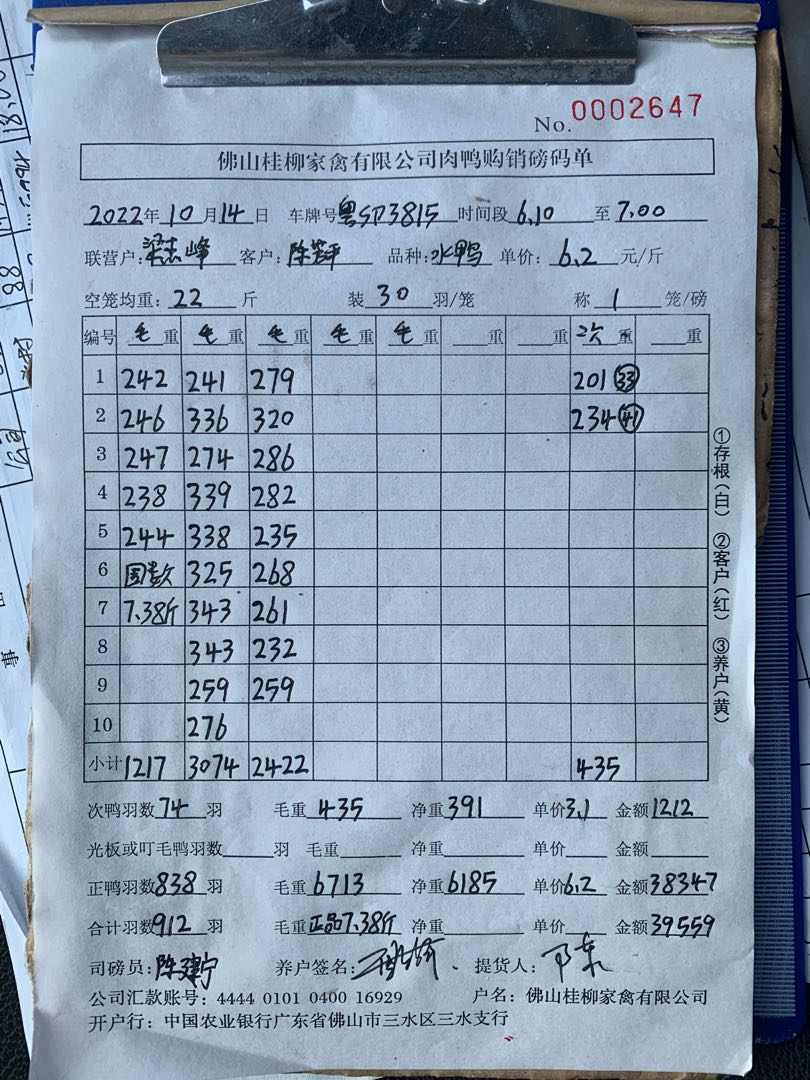 No. 0002647
佛山桂柳家禽有限公司肉鸭购销磅码单
2022年10月14日 车牌号粤S 03815 时间段6.10至7.00
联营户:梁志峰 客户:陈 平 品种:水鸭 单价:6.2元/斤
空笼均重:22斤 装30羽/笼 称1笼/磅
编号 毛重 毛重 毛重 毛重 毛重 重 重 次重 重
1 242 241 279 201 33
2 246 336 320 234 41
3 247 274 286
4 238 339 282
5 244 338 235
6 325 268
7 7.38斤 343 261
8 343 232
9 259 259
10 276
小计 1217 3074 2422 435
次鸭羽数74羽 毛重435 净重391 单价3.1 金额1212
光板或叮毛鸭羽数 羽 毛重 净重 单价 金额
正鸭羽数838羽 毛重6713 净重6185 单价6.2 金额38347
合计羽数912羽 毛重正品7.38斤 净重 单价 金额39559
司磅员:陈建宁 养户签名: 提货人:
公司汇款账号:4444 0101 0400 16929 户名:佛山桂柳家禽有限公司
开户行:中国农业银行广东省佛山市三水区三水支行
①存根(白) ②客户(红) ③养户(黄)